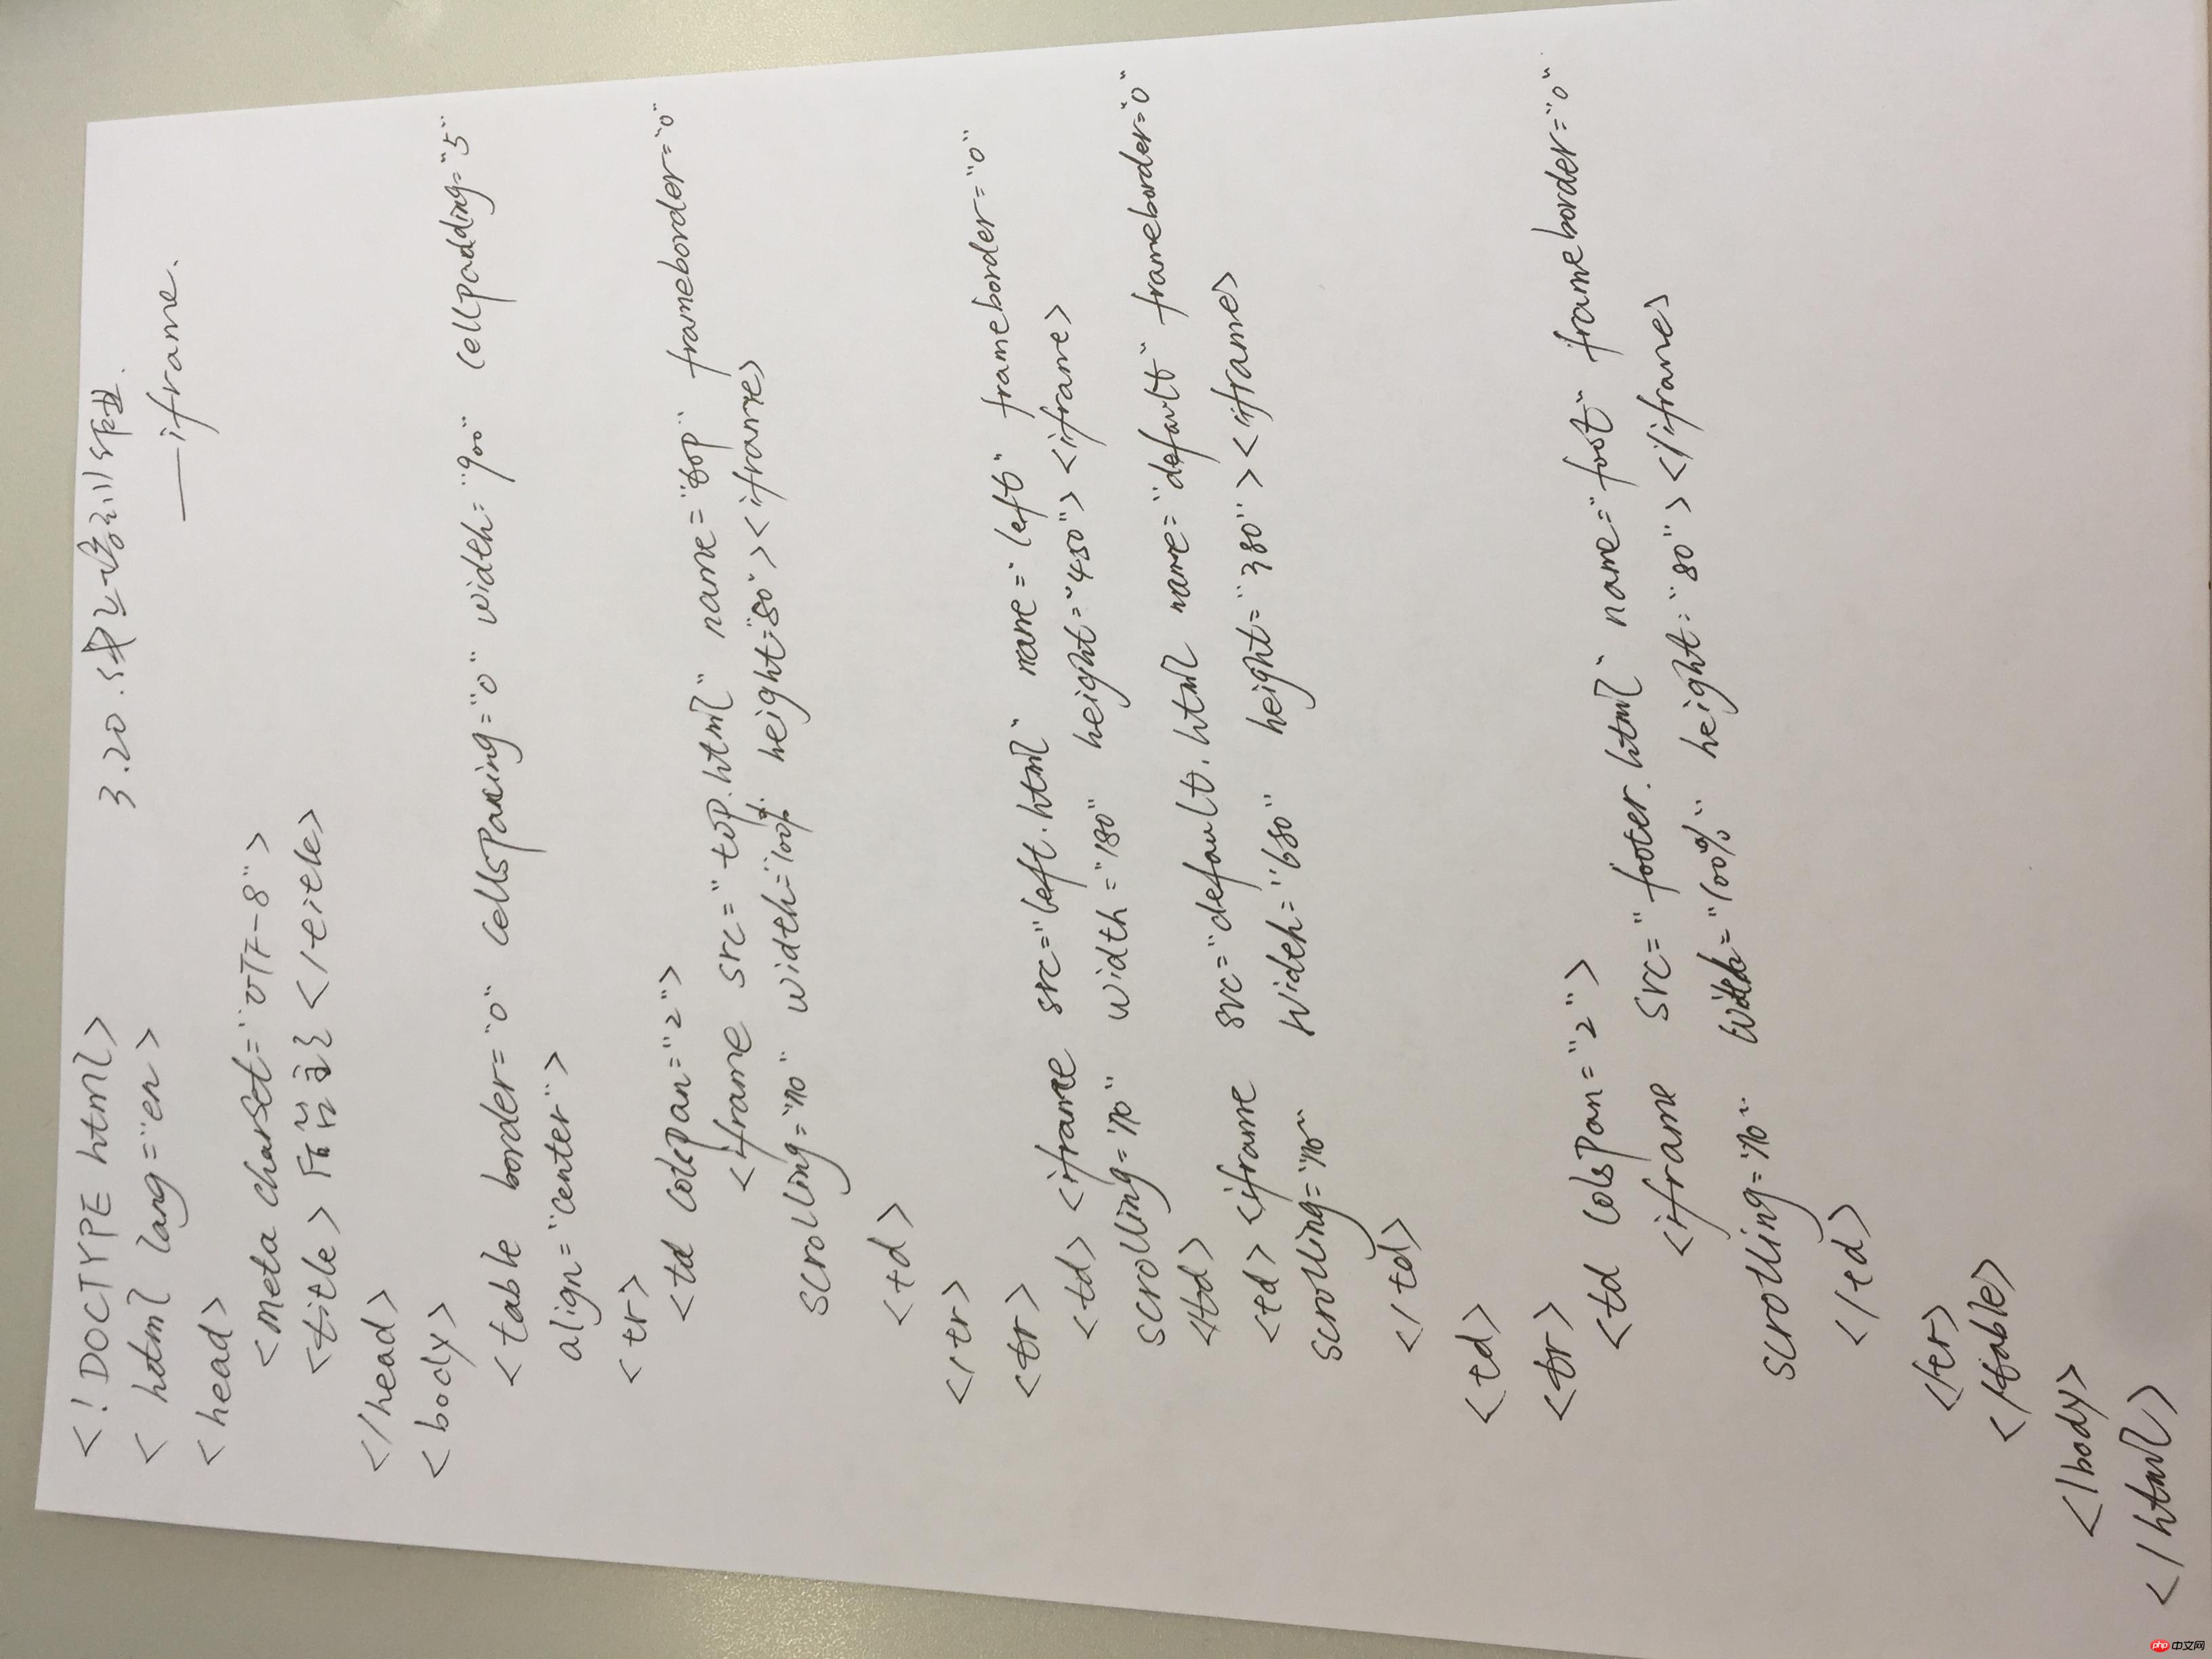 3.20.线上培训作业.
——iframe.
<!DOCTYPE html>
<html lang="en>
<head>
<meta charset="UTF-8">
<title>后台主</title>
</head>
<body>
<table border="0" cellspacing="0" width="900" cellpadding="5"
align="center">
<tr>
<td colspan="2">
<iframe src="top.html" name="top" frameborder="0"
scrolling="no" width="100% height="80"><iframe>
<td>
</tr>
<tr>
<td><iframe src="left.html" name="left" frameborder="0"
scrolling="no" width="180" height="450"><iframe>
</td>
<td><iframe src="default.html name="default" frameborder="0"
scrolling="no" width="680" height="380"><iframe>
</td>
<td>
<tr>
<td colspan="2">
<iframe src="footer.html" name="foot" frameborder="0"
scrolling="no" width="100%" height="80"></iframe>
</td>
</tr>
</table>
</body>
</html>
php 中文网